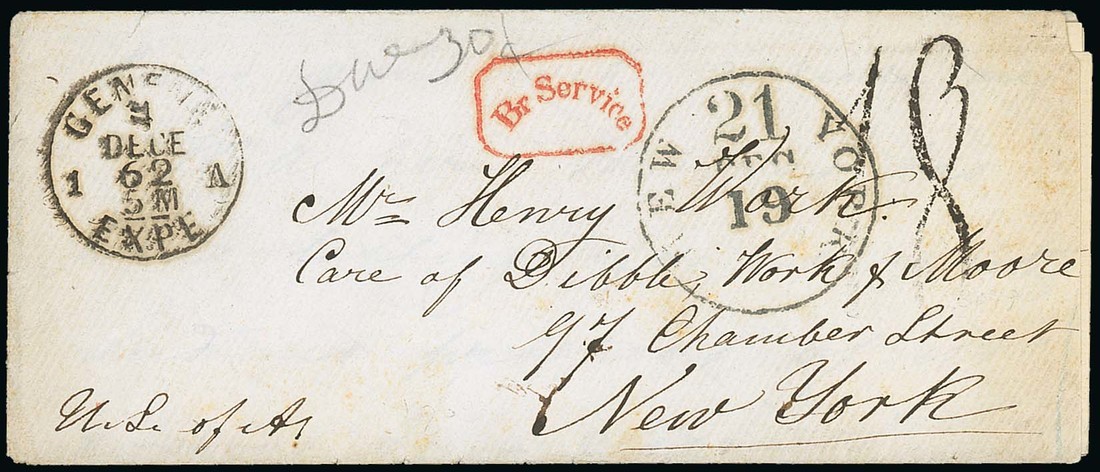 GENEVE
DECE
62
5 M
EXPE
Due 30¢
Br Service
NEW YORK
21
DEC
19
18
Mr Henry Work.
Care of Dibble, Work & Moore
97 Chamber Street
New York
U.S. of A